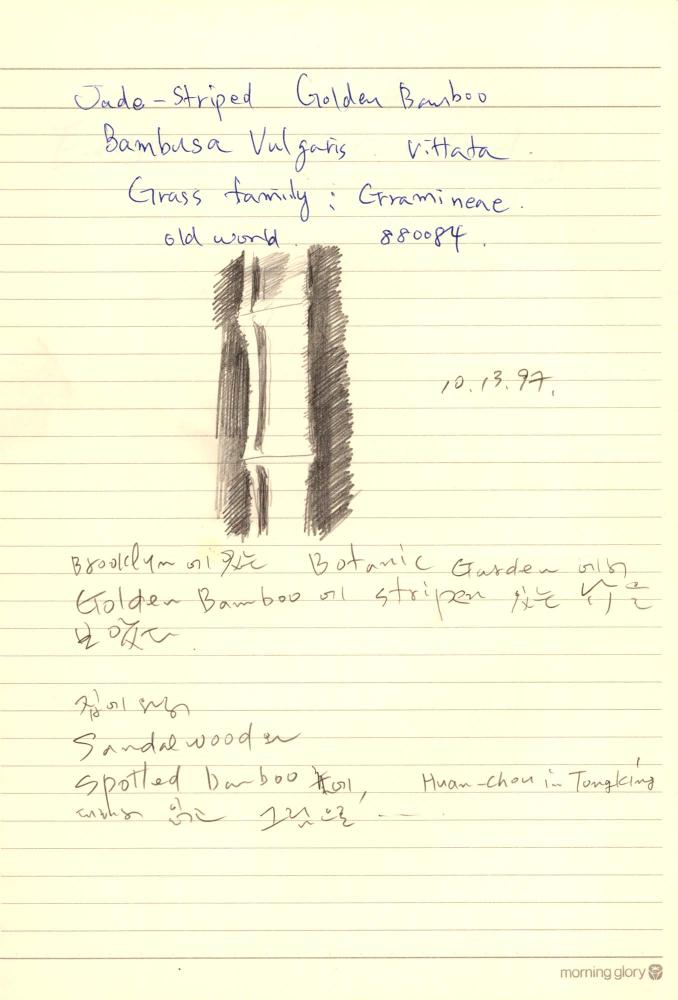 Jade-Striped Golden Bamboo
Bambusa Vulgaris Vittata
Grass family : Gramineae.
old world. 880084.
10.13.97.
Brooklyn에 있는 Botanic Garden 에서
Golden Bamboo에 stripen 있는
보았다
집에 와서
Sandalwood
Spotted bamboo 에, Huan-chou in Tongking
대해서 읽고 그림을 ....
morning glory